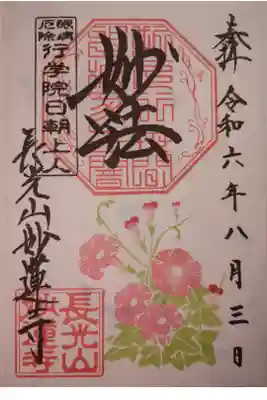 奉拝 令和六年八月三日
妙法
眼病
厄除
行学院日朝上人
長光山妙蓮寺
長光山
妙蓮寺